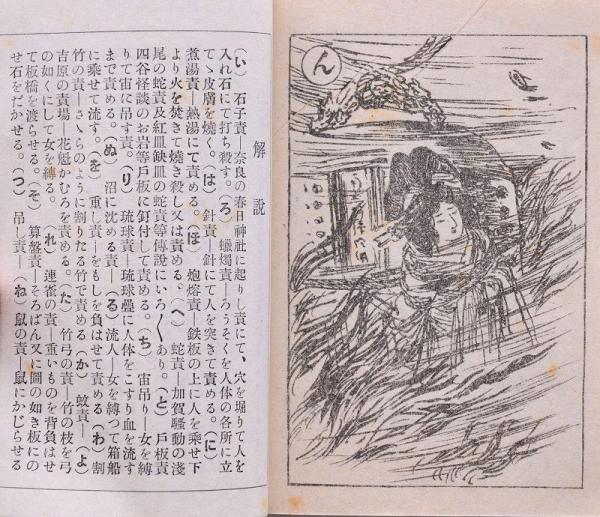 解説
（い）　石子責―奈良の春日神社に起りし責にて、穴を堀りて人を
入れ石にて打ち殺す。（ろ）蠟燭責―ろうそくを人体の各所に立
てゝ皮膚を燒く。（は）　針責―針にて人を突きて責める。（に）
煮湯責―熱湯にて責める。（ほ）炮熔責―鉄板の上に人を乘せ下
より火を焚きて燒き殺し又は責める。（へ）　蛇責―加賀騒動の淺
尾の蛇責及紅皿缺皿の蛇責等傳說にいろ〱あり。（と）戶板責
四谷怪談のお岩等戶板に釘付して責める。（ち）　宙吊り―女を縛
りて宙に吊す責。（り）　琉球責―琉球疊に人体をこすり血を流す
まで責める。（ぬ）　沼に沈める責―（る）流人―女を縛つて箱船
に乘せて流す。（を）重し責―をもしを負はせて責める（わ）割
竹の責―さゝらのように割りたる竹で責める（か）蚊責―（よ）
吉原の責場―花魁かむろを責める。（た）　竹弓の責―竹の枝を弓
の如くにして女を縛る。　（れ）連雀の責―重いものを背負はせ
て板橋を渡らせる。（そ）　算盤責―そろばん又に圖の如き板にの
せ石をだかせる。（つ）吊し責―（ね）鼠の責―鼠にかじらせる
ん